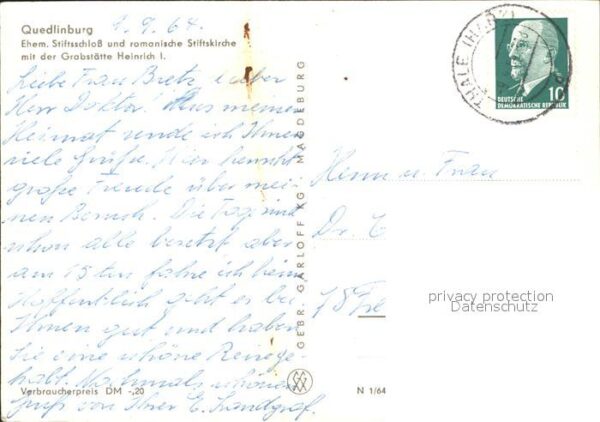 Quedlinburg
9.9.64.
Ehem. Stiftsschloß und romanische Stiftskirche
mit der Grabstätte Heinrich I.
Liebe Frau Bretz lieber
Herr Doktor. Aus meiner
Heimat sende ich Ihnen
viele Grüße. Hier herrscht
große Freude über mei-
nen Besuch. Die Tage sind
schon alle besetzt aber
am 15ten fahre ich heim
Hoffentlich geht es bei
Ihnen gut und haben
Sie eine schöne Reise ge-
habt. Nochmals schönen
Gruß von Ihrer E. Landgraf.
Verbraucherpreis DM -,20
GEBR. GARLOFF KG MAGDEBURG
N 1/64
THALE (HARZ)
DEUTSCHE
DEMOKRATISCHE REPUBLIK
10
Herrn u. Frau
Dr. E
78 Fre
privacy protection
Datenschutz